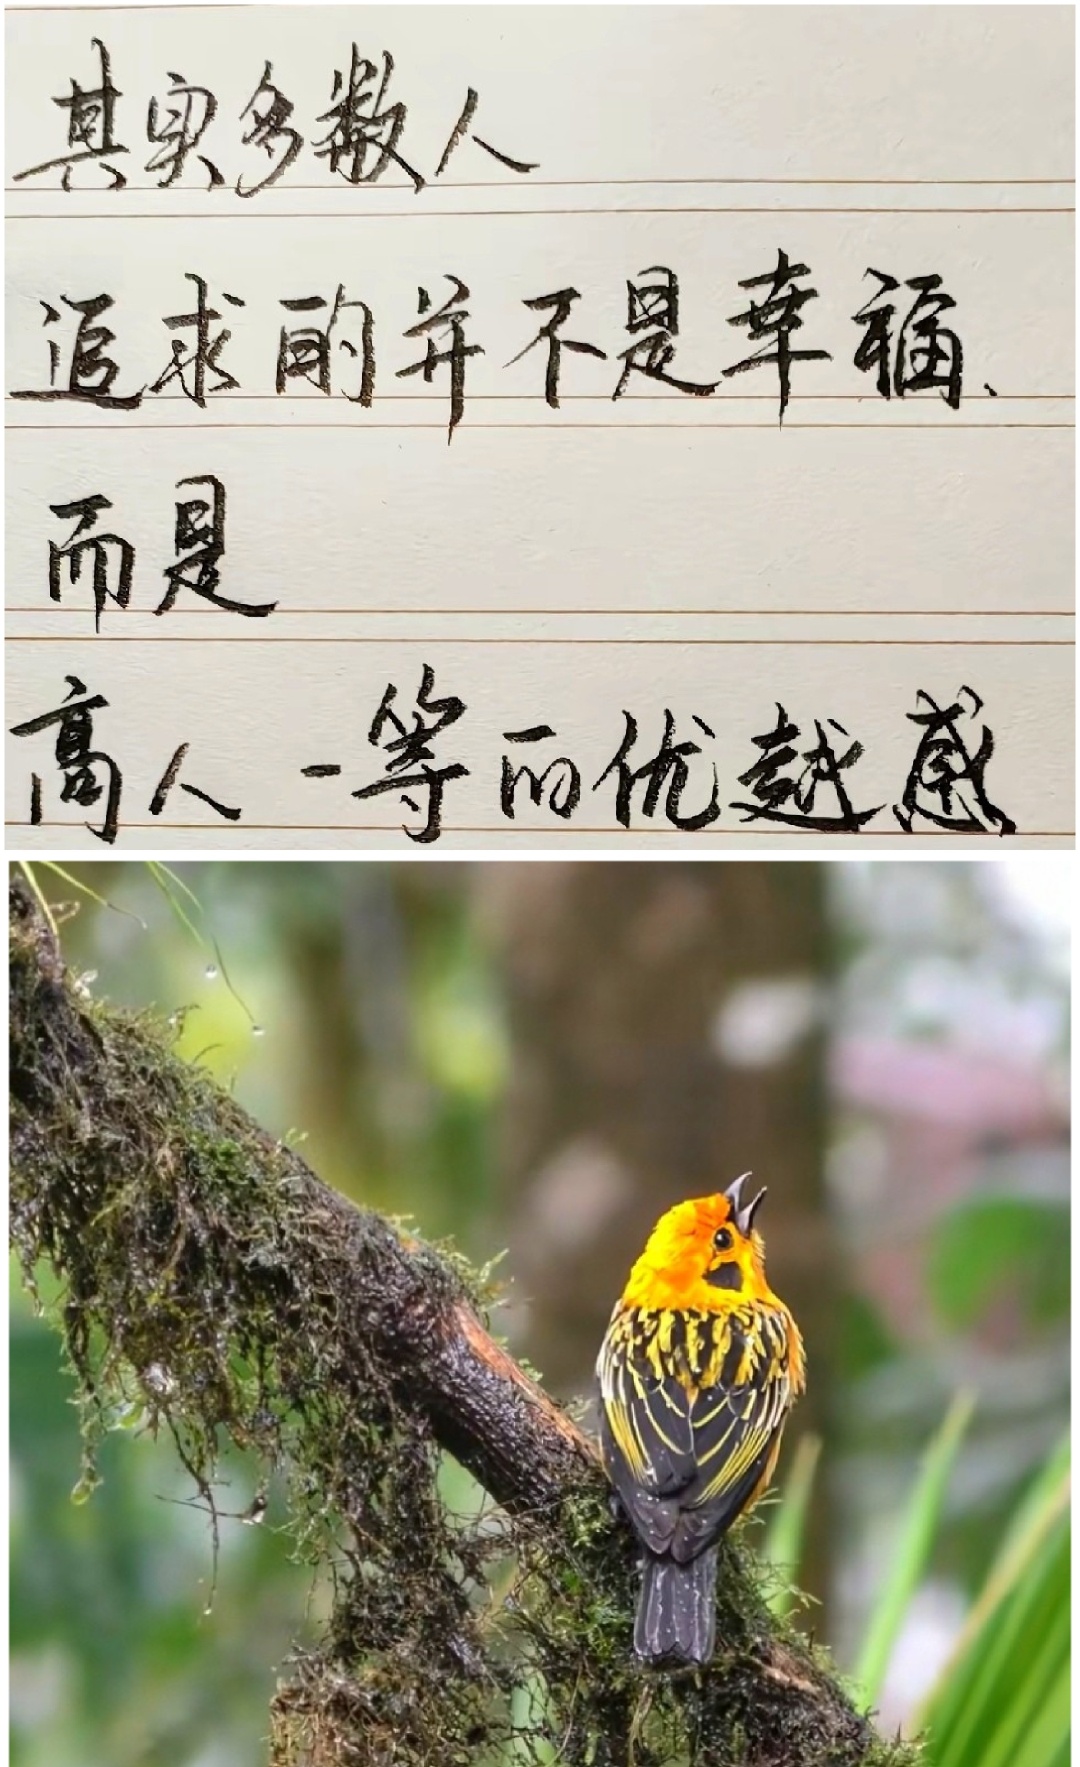 其实多数人
追求的并不是幸福、
而是
高人一等的优越感